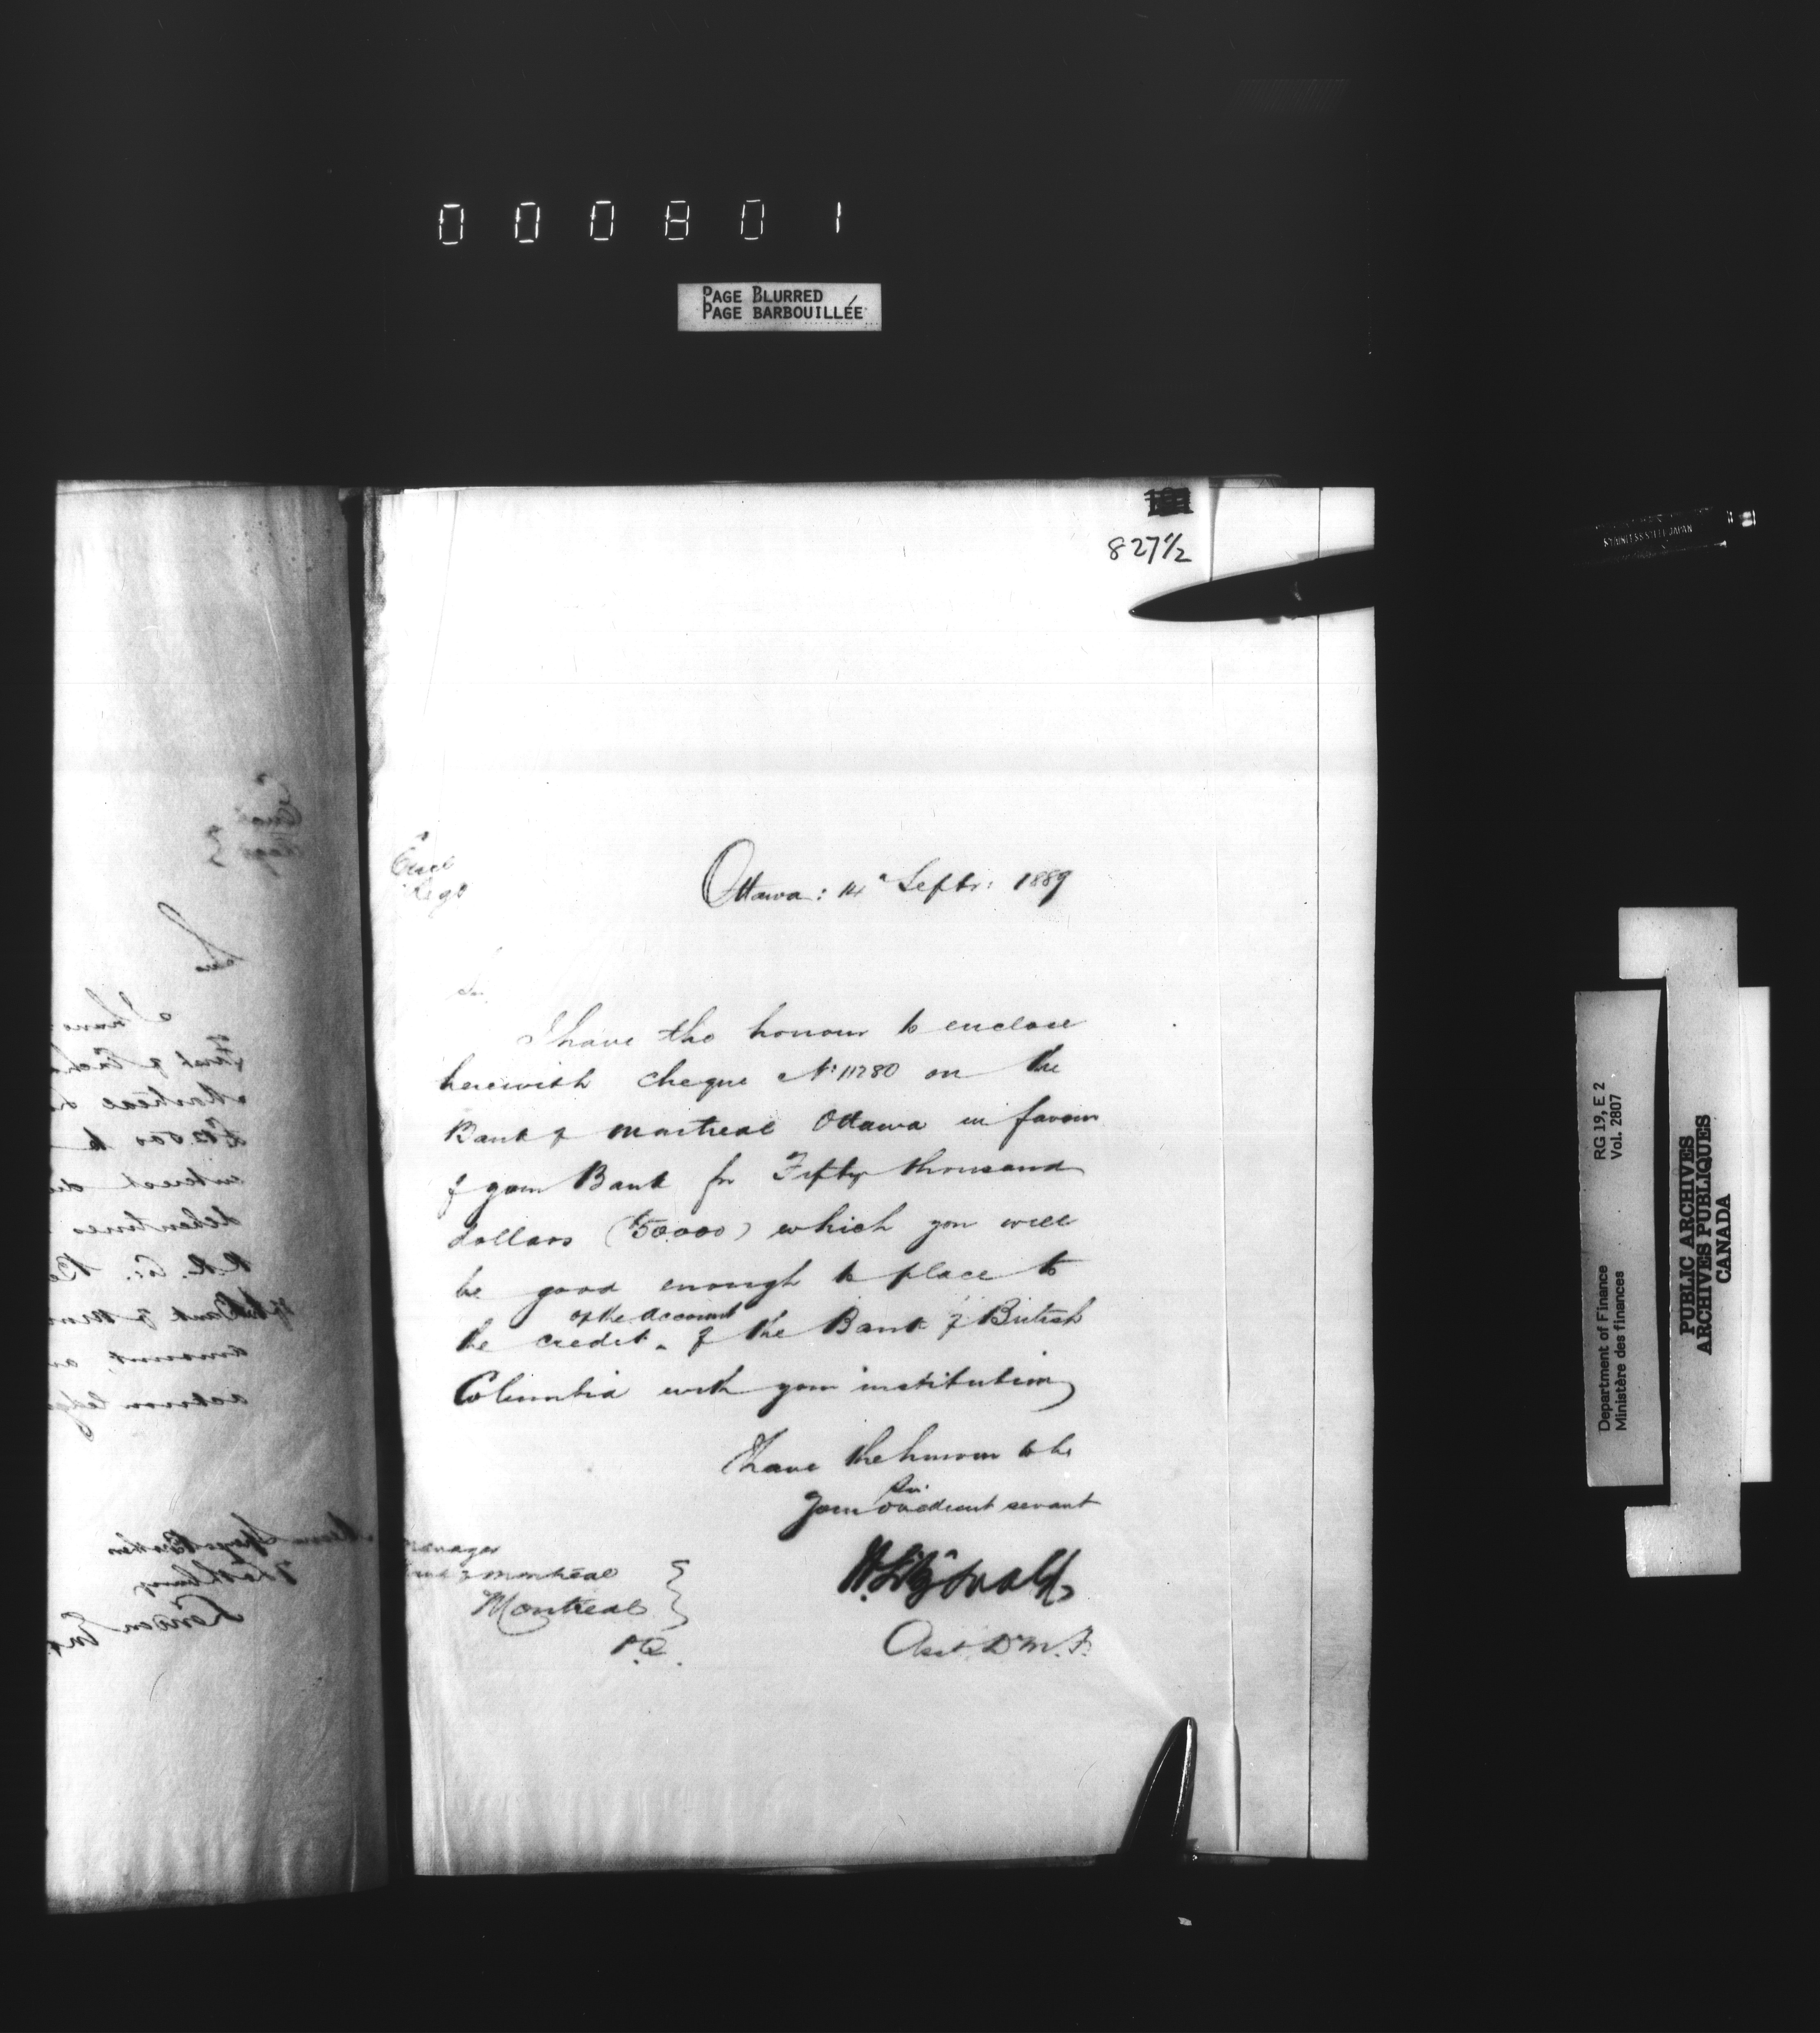 000801
PAGE BLURRED
PAGE BARBOUILLÉE
827½
STAINLESS STEEL JAPAN
Encl
Regd
Ottawa: 14 Septr: 1889
Sir,
I have the honour to enclose
herewith cheque No 11280 on the
Bank of Montreal Ottawa in favour
of your Bank for Fifty thousand
dollars ($50.000) which you will
be good enough to place to
of the account
the credit of the Bank of British
Columbia with your institution
I have the honour to be
Sir
Your obedient servant
Asst D.M.F.
Manager
Bank of Montreal
Montreal
P.Q.
RG 19, E 2
Vol. 2807
Department of Finance
Ministère des finances
PUBLIC ARCHIVES
ARCHIVES PUBLIQUES
CANADA